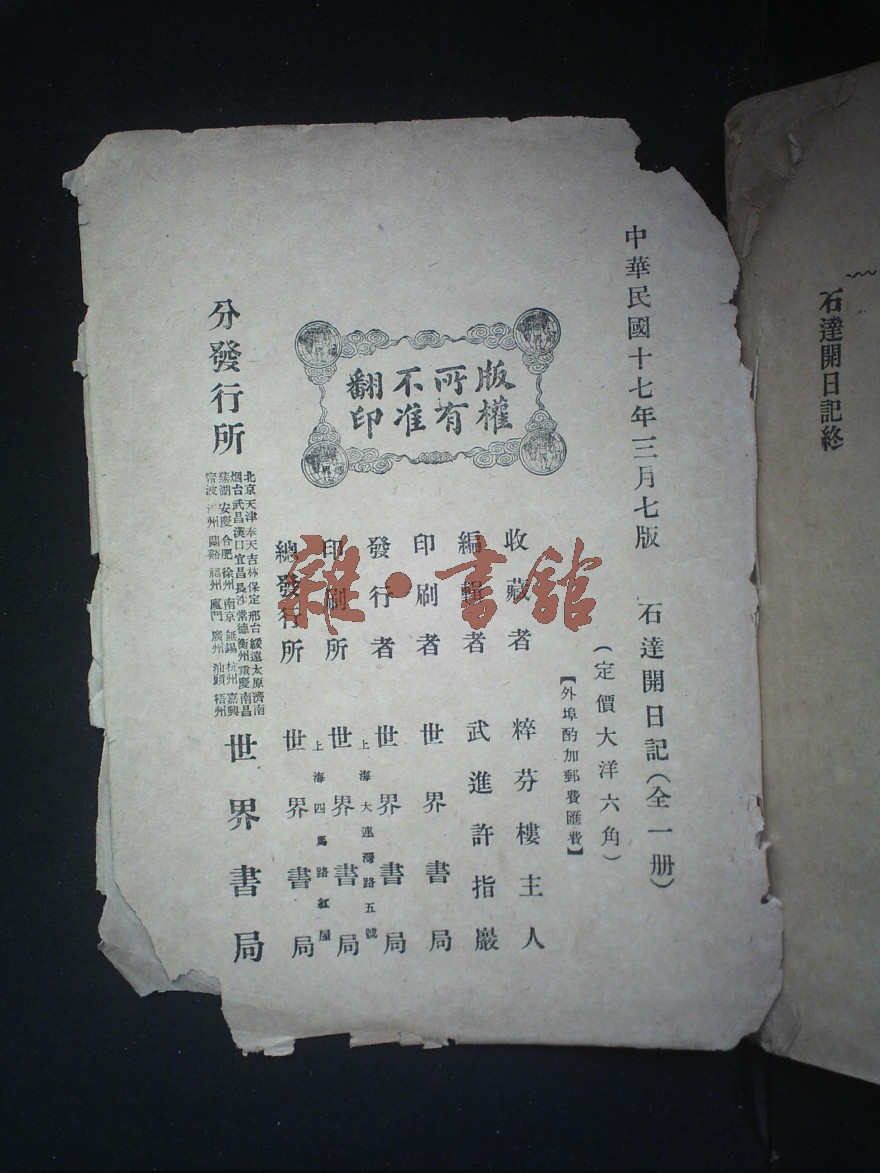 石達開日記終
中華民國十七年三月七版
石達開日記（全一册）
（定價大洋六角）
【外埠酌加郵費匯費】
版權所有
不准翻印
收藏者 粹芬樓主人
編輯者 武進許指嚴
印刷者 世界書局
發行者 世界書局
上海大連灣路五號
印刷所 世界書局
上海四馬路紅屋
總發行所 世界書局
分發行所
北京 天津 奉天 吉林 保定 邢台 綏遠 太原 濟南
烟台 武昌 漢口 宜昌 長沙 常德 衡州 重慶 南昌
蕪湖 安慶 合肥 徐州 南京 無錫 杭州 嘉興
寧波 州 蘭谿 福州 廈門 廣州 汕頭 梧州
世界書局
雜·書館